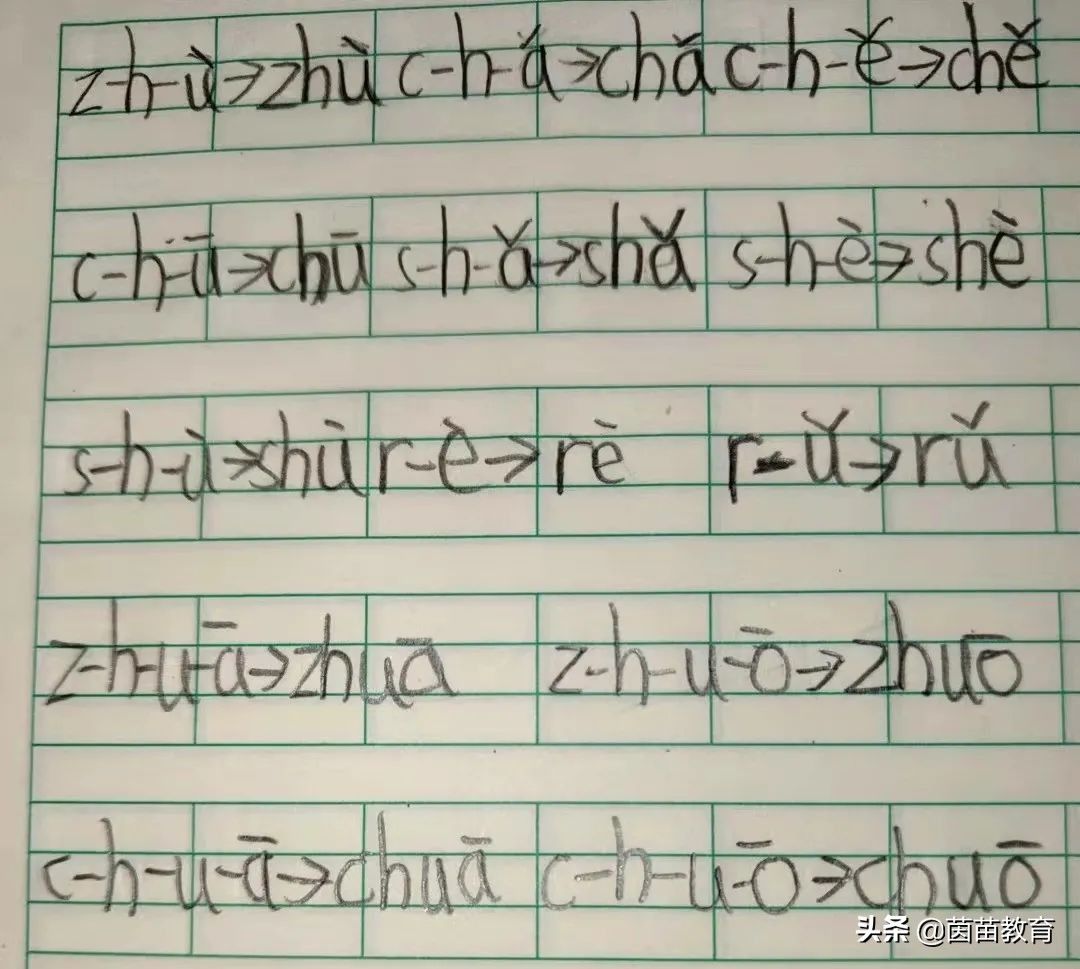 z-h-ù→zhù c-h-ǎ→chǎ c-h-ě→chě
c-h-ū→chū s-h-ǎ→shǎ s-h-è→shè
s-h-ù→shù r-è→rè r-ǔ→rǔ
z-h-u-ā→zhuā z-h-u-ō→zhuō
c-h-u-ā→chuā c-h-u-ō→chuō
头条 @茵苗教育